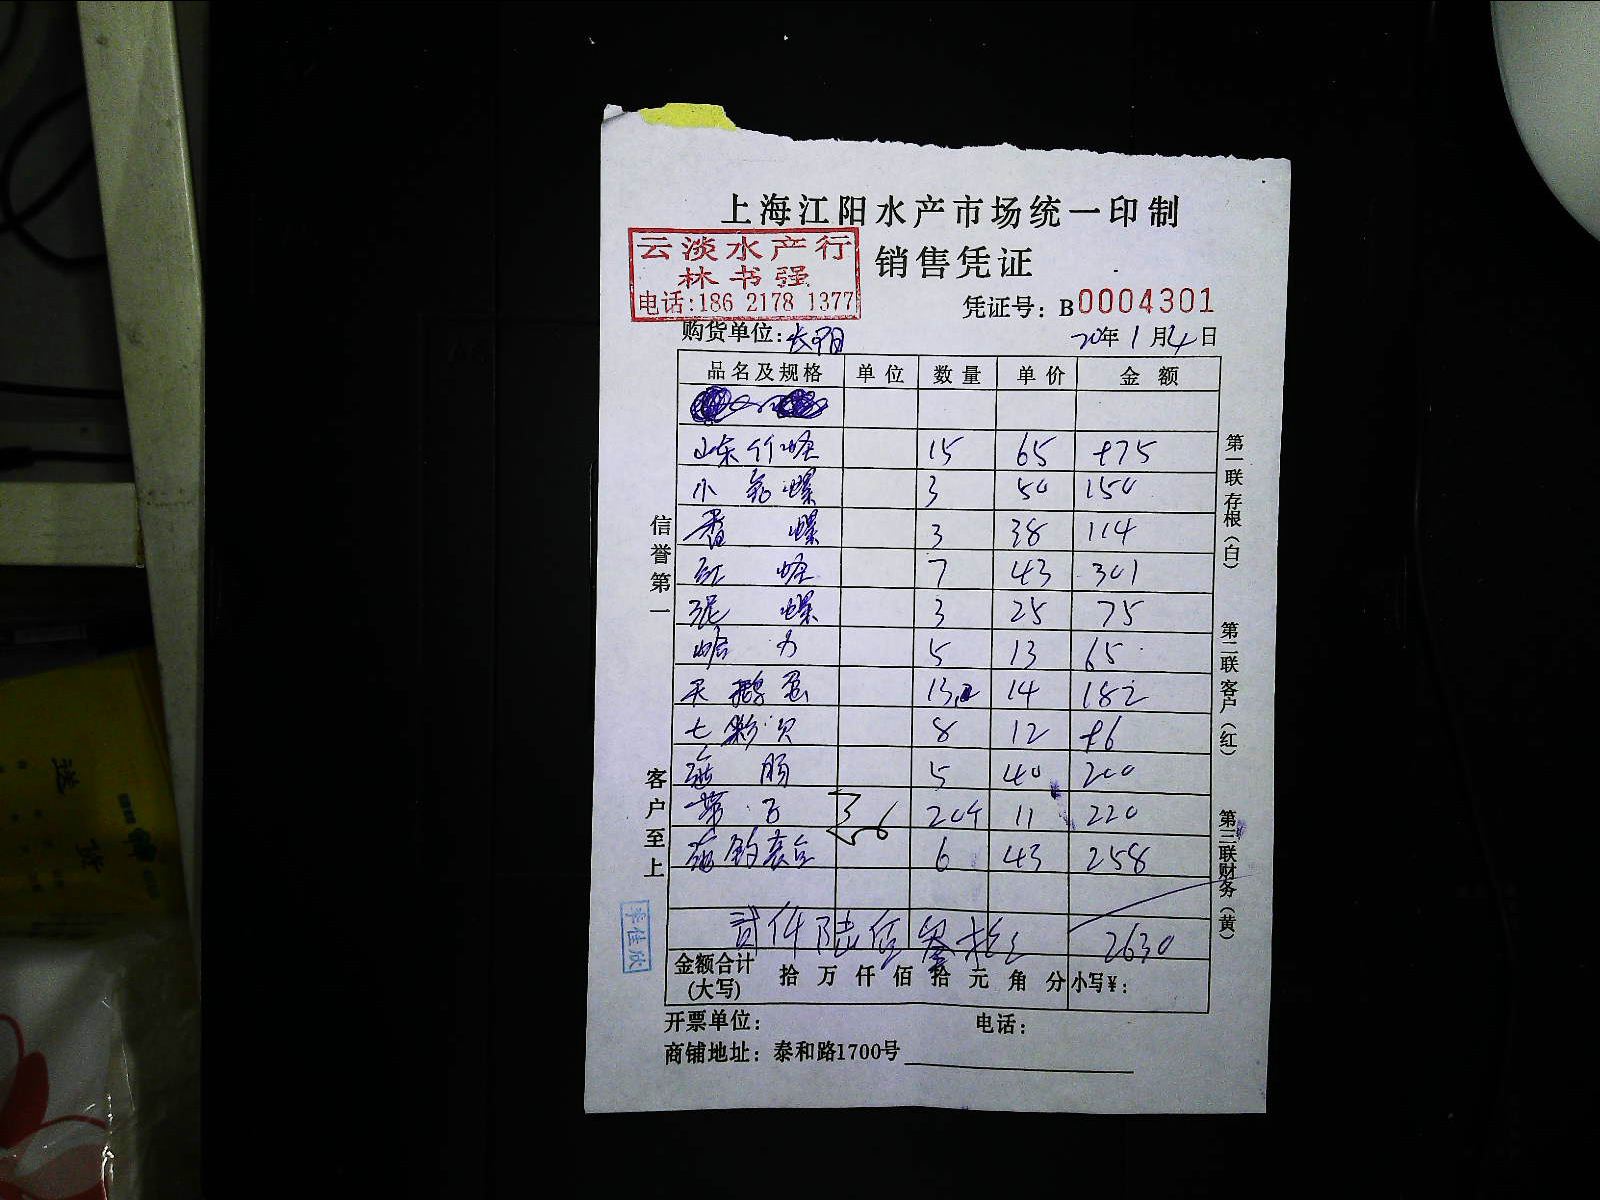 上海江阳水产市场统一印制
销售凭证
云淡水产行
林书强
电话:186 2178 1377
凭证号: B0004301
购货单位: 长阳 20年1月14日
品名及规格 单位 数量 单价 金额
山东竹蛏 15 65 975
小 螺 3 50 150
香螺 3 38 114
红蛏 7 43 301
泥螺 3 25 75
蛤 5 13 65
天鹅蛋 13 14 182
七彩贝 8 12 96
海肠 5 40 200
带子 36 20斤 11 220
6 43 258
贰仟陆佰叁拾 2630
金额合计(大写) 拾 万 仟 佰 拾 元 角 分 小写¥:
开票单位: 电话:
商铺地址: 泰和路1700号
信誉第一
客户至上
第一联存根(白)
第二联客户(红)
第三联财务(黄)
李佳欣